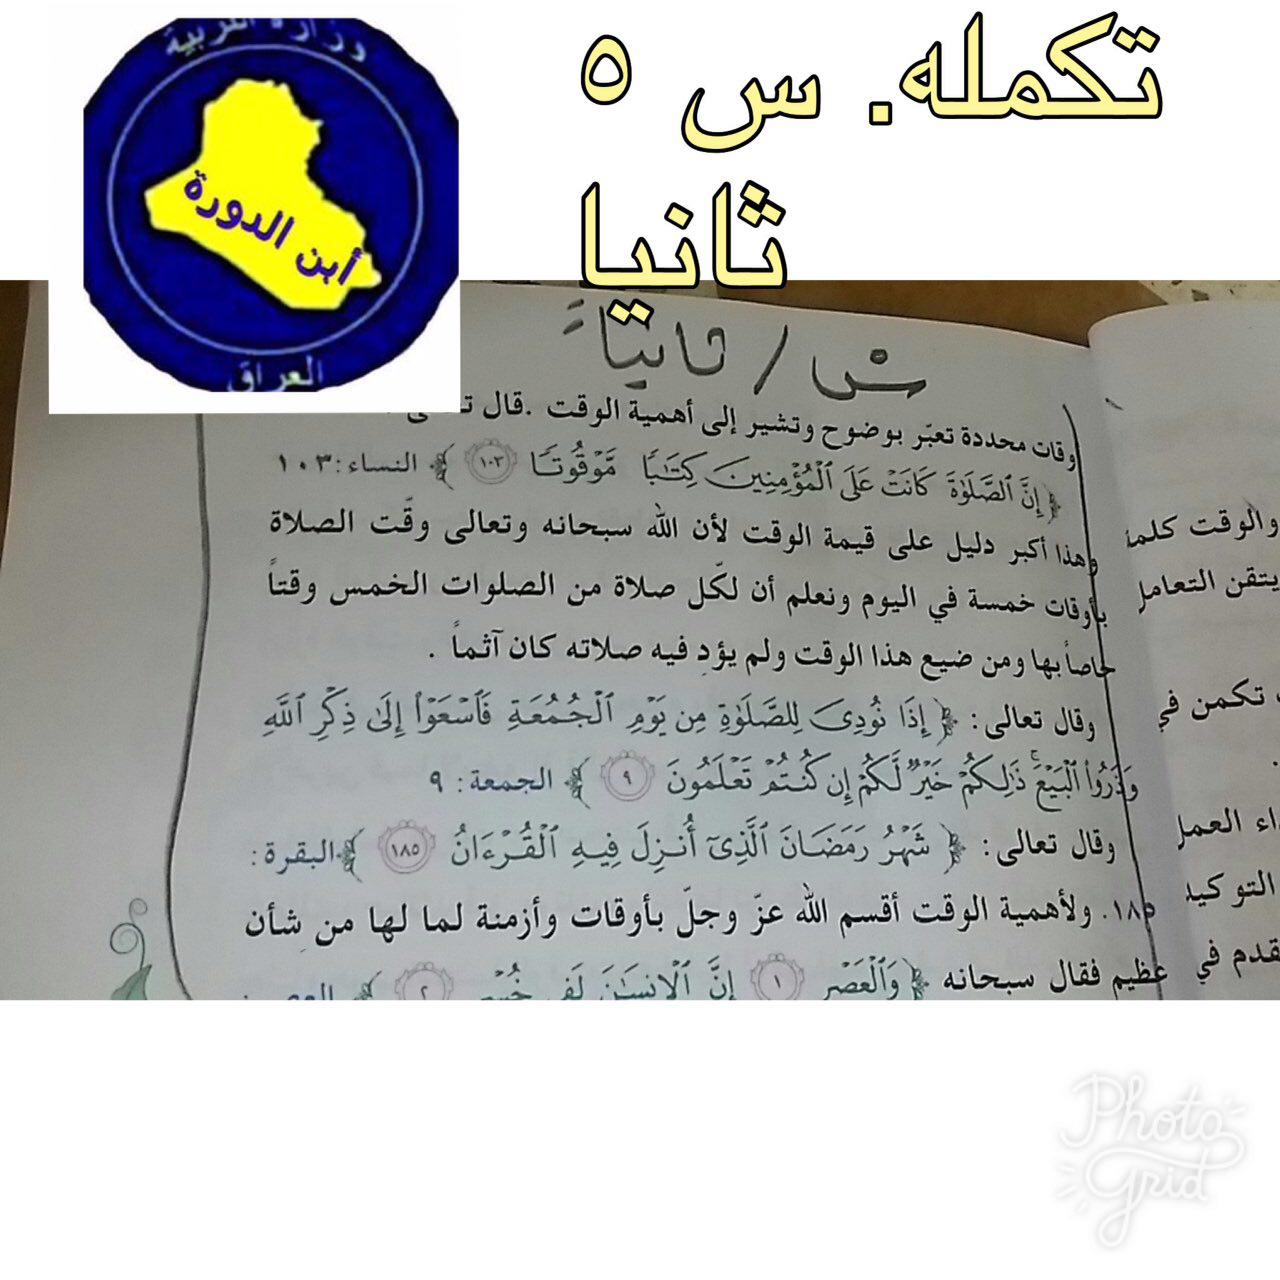 تكمله. س ٥
ثانيا
وزارة التربية
أبن الدورة
العراق
س / ثانياً
وقات محددة تعبّر بوضوح وتشير إلى أهمية الوقت .قال
﴿ إِنَّ ٱلصَّلَوٰةَ كَانَتْ عَلَى ٱلْمُؤْمِنِينَ كِتَـٰبًا مَّوْقُوتًا ١٠٣ ﴾ النساء: ١٠٣
وهذا أكبر دليل على قيمة الوقت لأن الله سبحانه وتعالى وقّت الصلاة
بأوقات خمسة في اليوم ونعلم أن لكّل صلاة من الصلوات الخمس وقتاً
خاصاً بها ومن ضيع هذا الوقت ولم يؤدِ فيه صلاته كان آثماً .
وقال تعالى: ﴿ إِذَا نُودِىَ لِلصَّلَوٰةِ مِن يَوْمِ ٱلْجُمُعَةِ فَٱسْعَوْا۟ إِلَىٰ ذِكْرِ ٱللَّهِ
وَذَرُوا۟ ٱلْبَيْعَ ۚ ذَٰلِكُمْ خَيْرٌ لَّكُمْ إِن كُنتُمْ تَعْلَمُونَ ٩ ﴾ الجمعة: ٩
وقال تعالى: ﴿ شَهْرُ رَمَضَانَ ٱلَّذِىٓ أُنزِلَ فِيهِ ٱلْقُرْءَانُ ١٨٥ ﴾ البقرة:
١٨٥. ولأهمية الوقت أقسم الله عزّ وجلّ بأوقات وأزمنة لما لها من شأن
عظيم فقال سبحانه ﴿ وَٱلْعَصْرِ ١ إِنَّ ٱلْإِنسَـٰنَ لَفِى خُسْرٍ ٢ ﴾ العصر:
والوقت كلمة
يتقن التعامل
تكمن في
اء العمل
التوكيد
قدم في
Photo
Grid